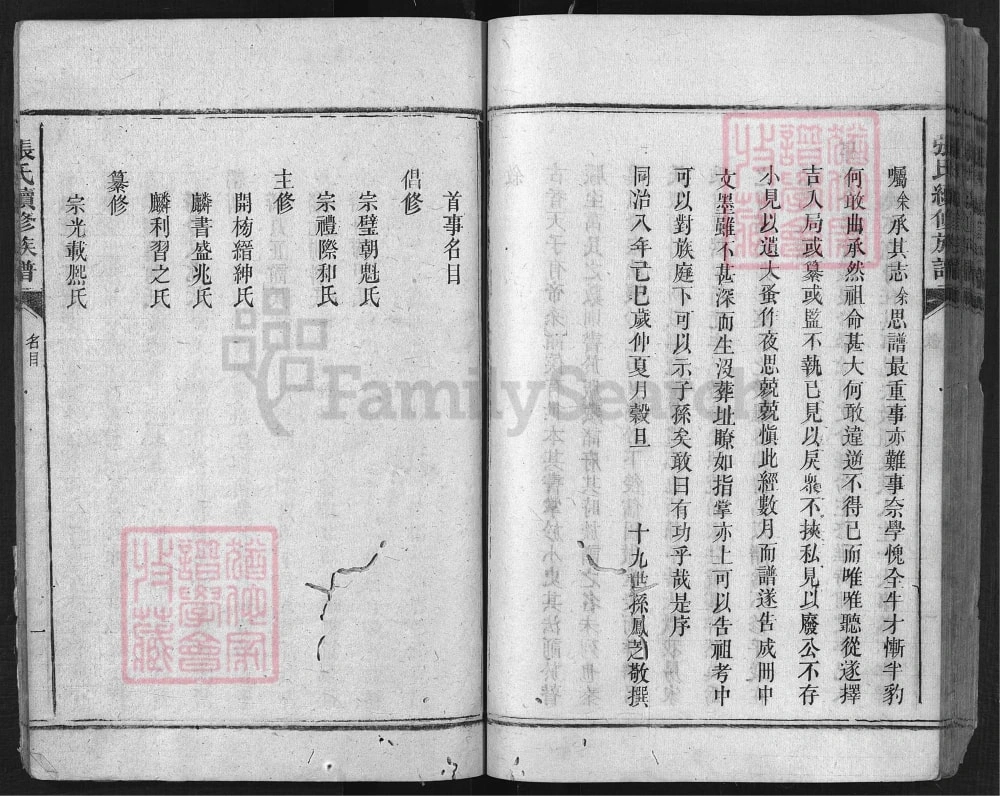 張氏續修族譜
囑余承其志余思譜最重事亦難事奈學愧全牛才慚半豹
何敢曲承然祖命甚大何敢違逆不得已而唯唯聽從遂擇
吉入局或纂或監不執已見以戾衆不挾私見以廢公不存
小見以遺大蚤作夜思兢兢慎此經數月而譜遂告成冊中
文墨雖不甚深而生沒葬址瞭如指掌亦上可以告祖考中
可以對族庭下可以示子孫矣敢曰有功乎哉是序
同治八年己巳歲仲夏月穀旦 十九世孫鳳芝敬撰
首事名目
倡修
宗璧朝魁氏
宗禮際和氏
主修
開楊縉紳氏
麟書盛兆氏
麟利習之氏
纂修
宗光載熙氏
張氏續修族譜
名目
一
FamilySearch
譜學會
收藏
譜學會
收藏